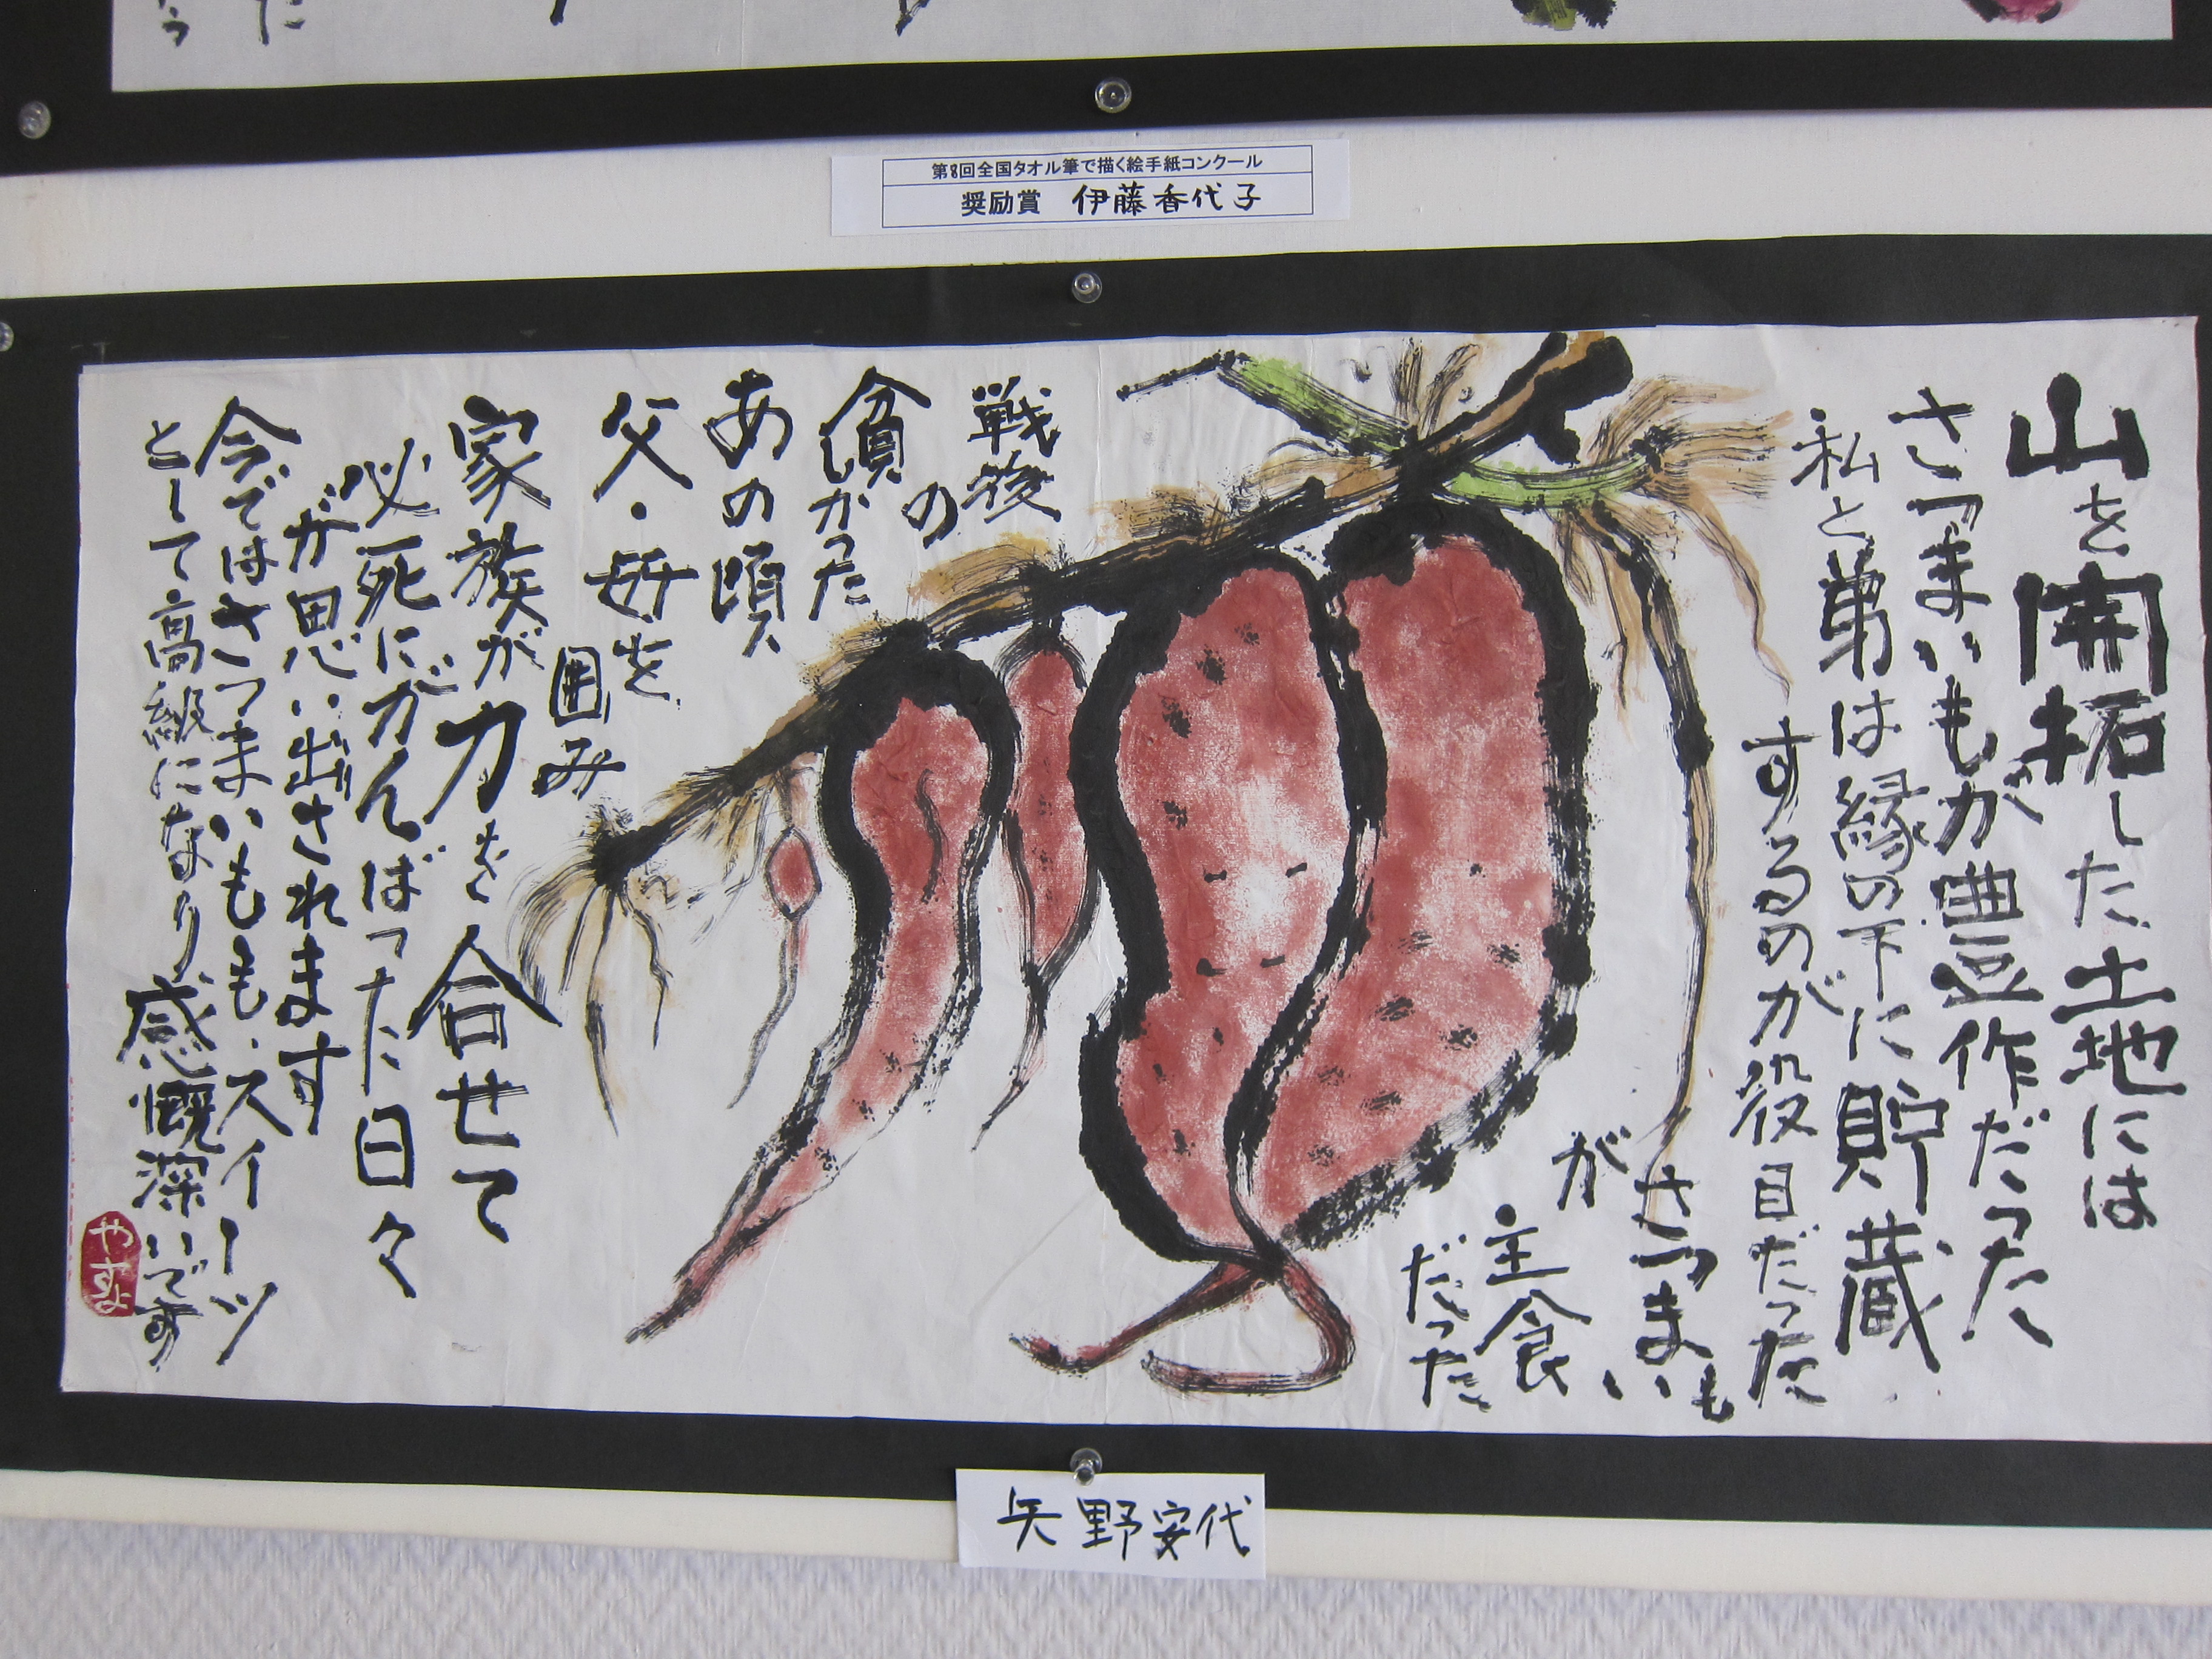 第8回全国タオル筆で描く絵手紙コンクール
奨励賞 伊藤香代子
山を開拓した土地には
さつまいもが豊作だった
私と弟は縁の下に貯蔵
するのが役目だった
さつまいも
が
主食
だった
戦後
の
貧かった
あの頃
父・母を
囲み
家族が力を合せて
必死にがんばった日々
が思い出されます
今ではさつまいもも、スイーツ
として高級になり感慨深いです
やすよ
矢野安代